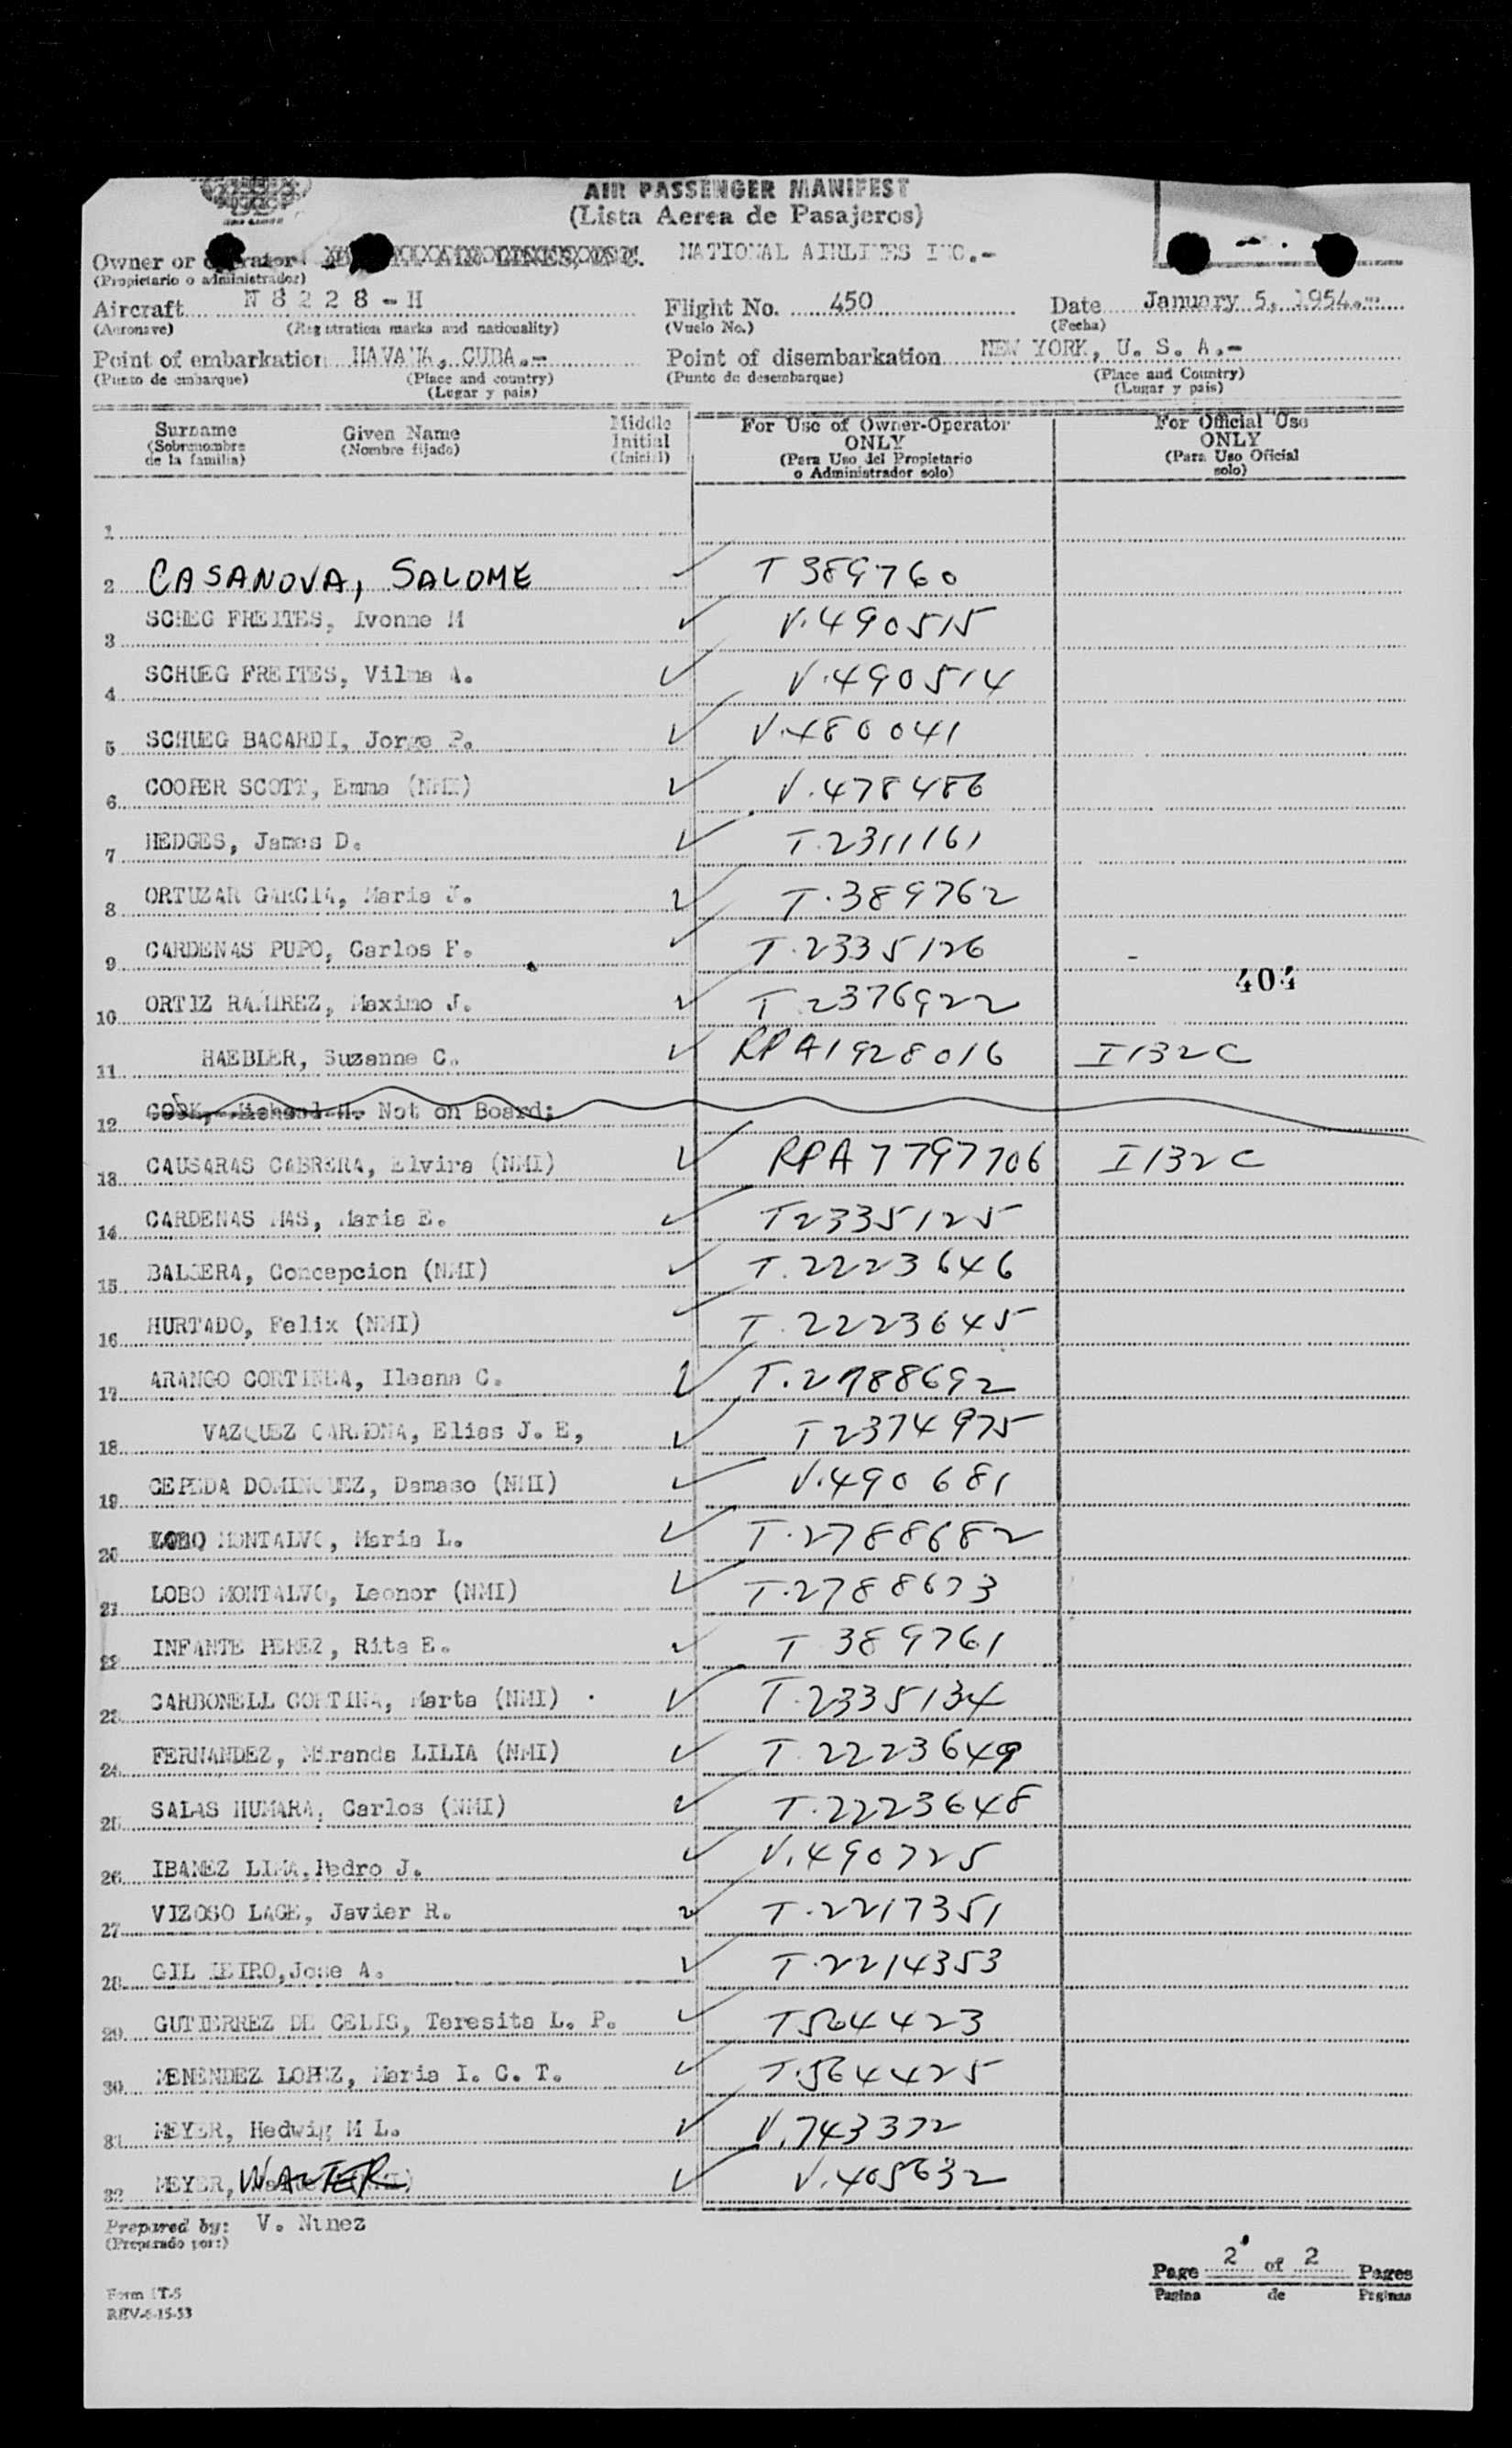 AIR PASSENGER MANIFEST
(Lista Aerea de Pasajeros)
Owner or AIR LINES, INC. NATIONAL AIRLINES INC.-
(Propietario o administrador)
Aircraft N 8 2 2 8 - H Flight No. 450 Date January 5, 1954.-
(Aeronave) (Registration marks and nationality) (Vuelo No.) (Fecha)
Point of embarkation HAVANA, CUBA.- Point of disembarkation NEW YORK, U. S. A.-
(Punto de embarque) (Place and country) (Punto de desembarque) (Place and Country)
(Lugar y pais) (Lugar y pais)
Surname Given Name Middle Initial For Use of Owner-Operator ONLY For Official Use ONLY
(Sobrenombre de la familia) (Nombre fijado) (Inicial) (Para Uso del Propietario o Administrador solo) (Para Uso Oficial solo)
1
2 CASANOVA, SALOME T 389760
3 SCHEG FREITES, Ivonne M V.490515
4 SCHUEG FREITES, Vilma A. V.490514
5 SCHUEG BACARDI, Jorge P. V.480041
6 COOPER SCOTT, Emma (NMI) V.478486
7 HEDGES, James D. T.2311161
8 ORTUZAR GARCIA, Maria J. T.389762
9 CARDENAS PUPO, Carlos F. T.2335126
404
10 ORTIZ RAMIREZ, Maximo J. T 2376922
11 HAEBLER, Suzanne C. RPA1928016 I132C
12 COOK, Not on Board:
13 CAUSARAS CABRERA, Elvira (NMI) RPA7797706 I132C
14 CARDENAS MAS, Maria E. T2335125
15 BALSERA, Concepcion (NMI) T.2223646
16 HURTADO, Felix (NMI) T.2223645
17 ARANGO CORTINA, Ileana C. T.2788692
18 VAZQUEZ CARMONA, Elias J. E, T2374975
19 CEPEDA DOMINGUEZ, Damaso (NMI) V.490681
20 LOBO MONTALVO, Maria L. T.2788682
21 LOBO MONTALVO, Leonor (NMI) T.2788673
22 INFANTE PEREZ, Rita E. T 389761
23 CARBONELL CORTINA, Marta (NMI) T.2335134
24 FERNANDEZ, Miranda LILIA (NMI) T.2223649
25 SALAS HUMARA, Carlos (NMI) T.2223648
26 IBANEZ LIMA, Pedro J. V.490725
27 VIZOSO LAGE, Javier R. T.2217351
28 GIL Jose A. T.2214353
29 GUTIERREZ DE CELIS, Teresita L. P. T564423
30 MENENDEZ LOPEZ, Maria I. C. T. T.564425
31 MEYER, Hedwig M L. V.743372
32 MEYER, WALTER V.405632
Prepared by: V. Nunez
(Preparado por:)
Page 2 of 2 Pages
Pagina de Paginas
Form IT-5
REV-6-15-53